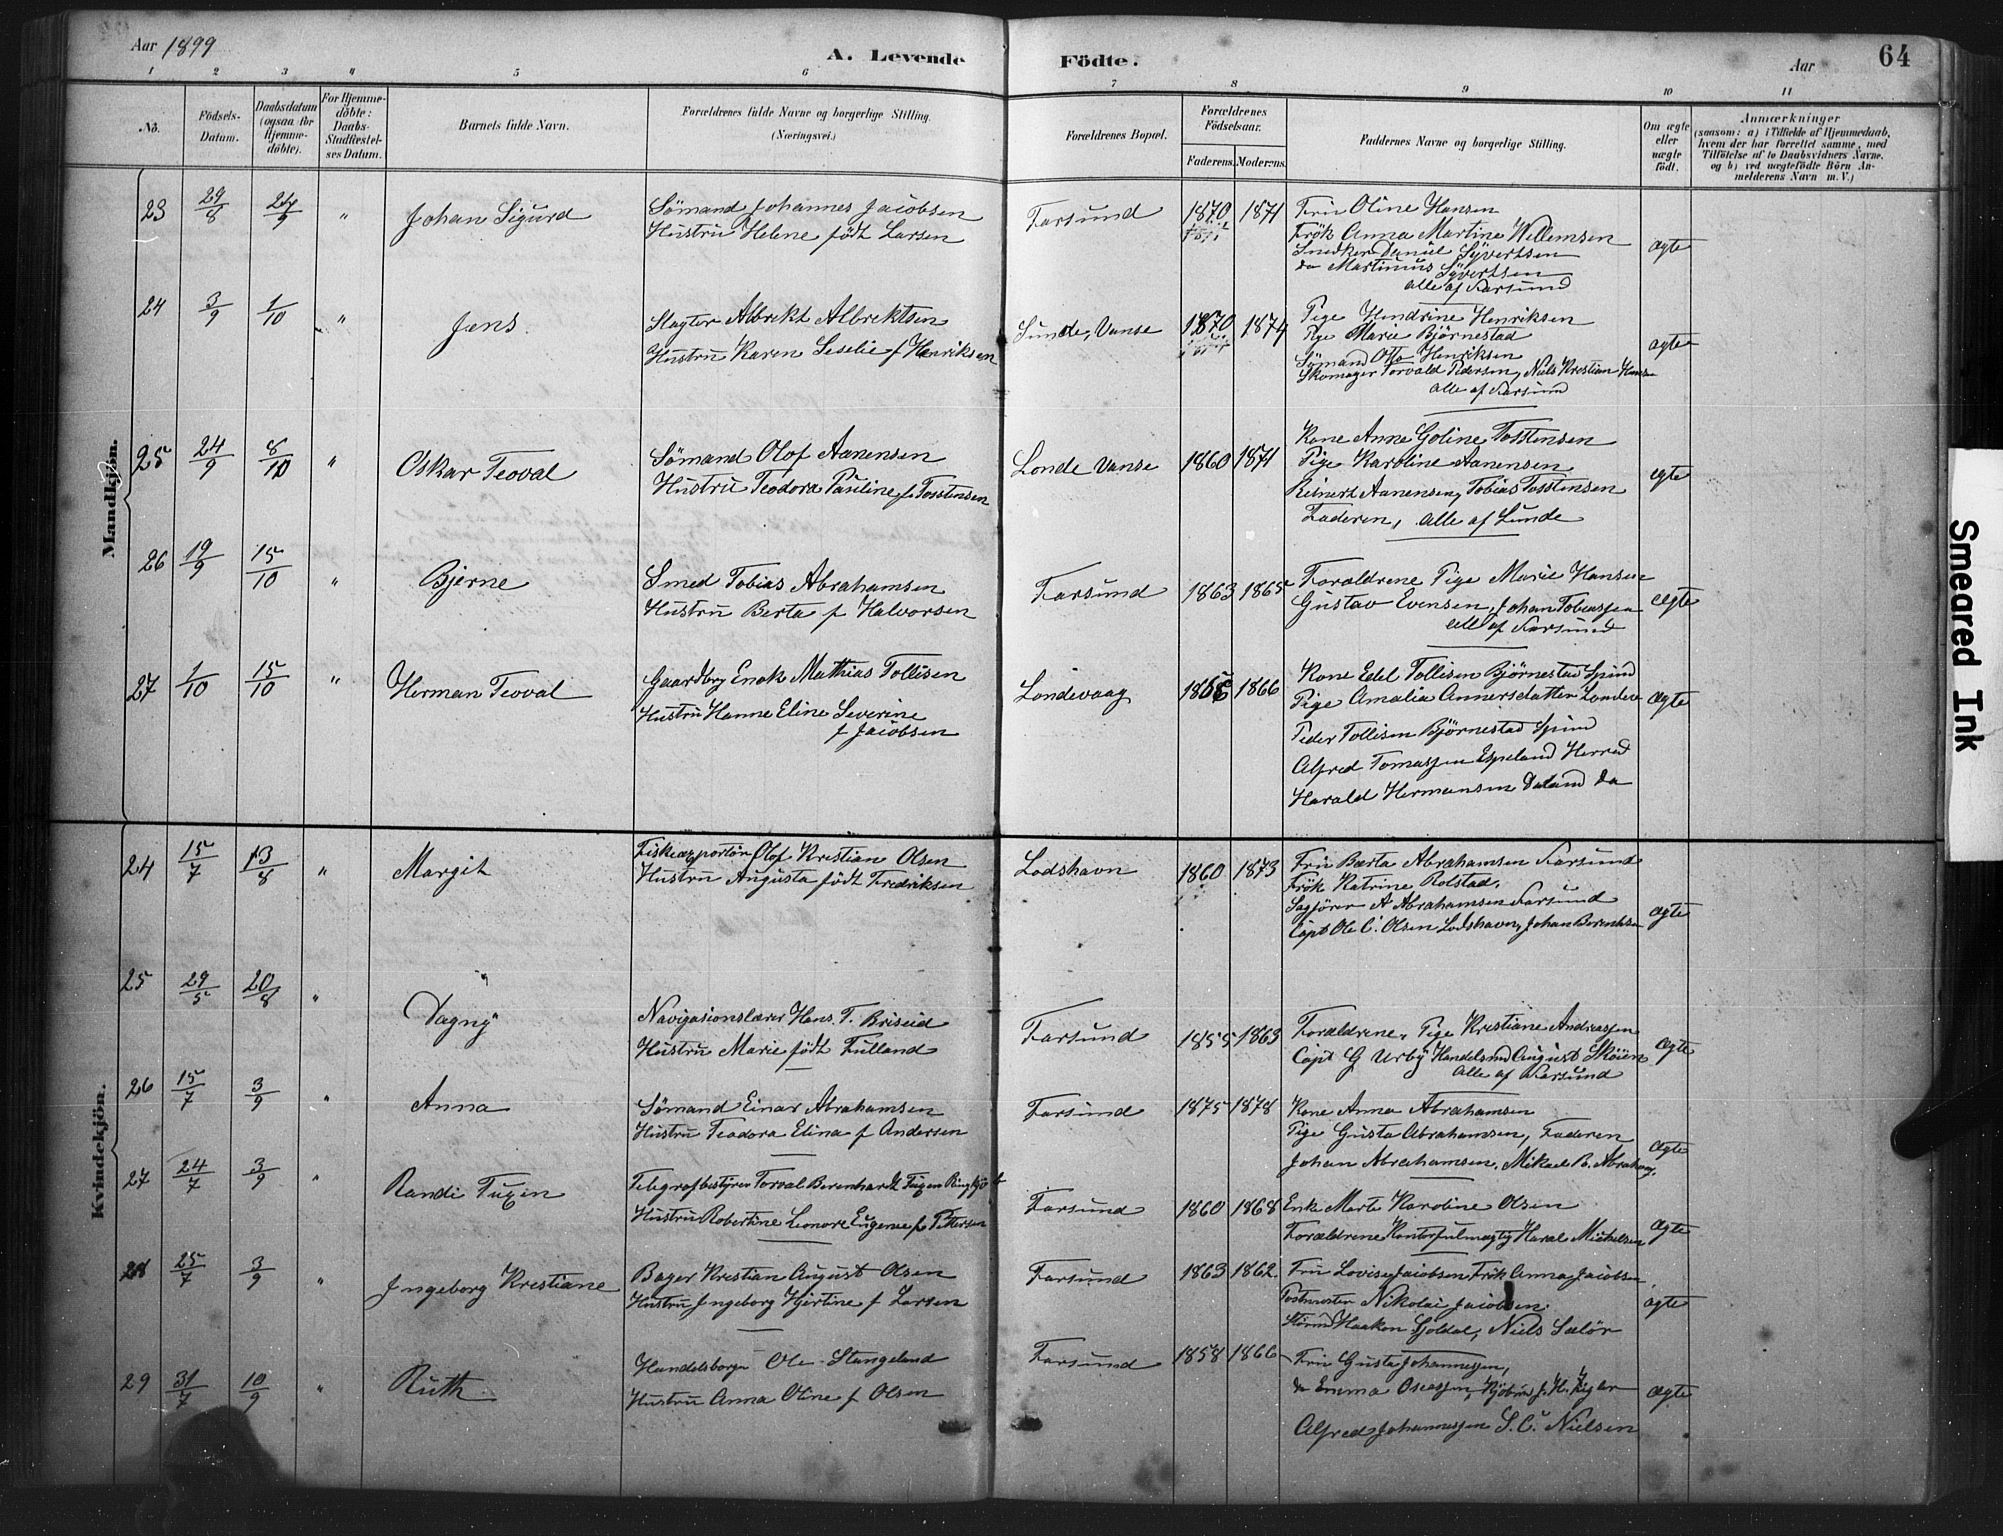 Aar 1899
A. Levende Födte.
Aar
64
1 2 3 4 5 6 7 8 9 10 11
No.
Födsels-Datum.
Daabsdatum (ogsaa for Hjemme-döbte).
For Hjemme-döbte: Daabs-Stadfæstel-ses Datum.
Barnets fulde Navn.
Forældrenes fulde Navne og borgerlige Stilling. (Næringsvei.)
Forældrenes Bopæl.
Forældrenes Födselsaar.
Faderens. Moderens.
Faddernes Navne og borgerlige Stilling.
Om ægte eller uægte födt.
Anmærkninger
(saasom: a) i Tilfælde af Hjemmedaab, hvem der har forrettet samme, med Tilföielse af to Daabsvidners Navne. og b) ved uægtefödte Börn An-melderens Navn m. V.)
Mandkjön.
23 29/8 24/9 " Johan Sigurd
Sömand Johannes Jacobsen
Hustru Helene födt Larsen
Farsund 1870 1871
Fru Oline Hansen
Frök Anna Martine Willemsen
Snedker Daniel Syvertsen
do Martinius Syvertsen
alle af Farsund
ægte
24 3/9 1/10 " Jens.
Slagter Albrekt Albrektsen
Hustru Karen Seselie f Henriksen
Sunde, Vanse 1870 1874
Pige Hendrine Henriksen
Pige Marie Björnestad
Sömand Otto Henriksen
Skomager Torvald Pedersen, Niels Kristian Hansen
alle af Farsund
ægte
25 24/9 8/10 " Oskar Teoval
Sömand Olof Aanensen
Hustru Teodora Pauline f Tosstensen
Londe Vanse 1860 1871
Kone Anne Goline Tosstensen
Pige Karoline Aanensen
Reinert Aanensen, Tobias Tosstensen
Faderen, alle af Lunde
egte
26 19/9 15/10 " Bjerne
Smed Tobias Abrahamsen
Hustru Berta f Halvorsen
Farsund 1863 1865
Foraldrene Pige Marie Hansen
Gustav Evensen, Johan Tobiassen
alle af Farsund
ægte
27 1/10 15/10 " Herman Teoval
Gaardbrg Enok Mathias Tollisen
Hustru Hanne Eline Severine
f Jacobsen
Londevaag 1866
Kone Edel Tollisen Björnestad Spind
Pige Amalia Annersdatter Londev
Peder Tollisen Björnestad Spind
Alfred Tomassen Espeland Herred
Harald Hermansen Daland do
ægte
Kvindekjön.
24 15/7 13/8 " Margit
Fiskeexportör Olof Kristian Olsen
Hustru Augusta födt Fredriksen
Lodshavn 1860 1873
Fru Bærta Abrahamsen Farsund
Frök Katrine Rolstad.
Sagförer A Abrahamsen Farsund
Capt Ole C. Olsen Lodshavn, Johan Berentsen
ægte
25 29/5 20/8 " Dagny
Navigasionslærer Hans. T. Briseid
Hustru Marie födt Fulland
Farsund 1855 1863
Forældrene, Pige Kristiane Andreassen
Capt G Urby Handelsmd August Sköien
Alle af Farsund
ægte
26 15/7 3/9 " Anna
Sömand Einar Abrahamsen
Hustru Teodora Elina f Andersen
Farsund 1875 1878
Kone Anna Abrahamsen
Pige Gusta Abrahamsen, Faderen
Johan Abrahamsen, Mikael B. Abrahams
ægte
27 24/7 3/9 " Randi Tuxen
Telegrafbestyrer Torval Berenhardt Tuxen
Hustru Robertine Leonore Eugenie f Pettersen
Farsund 1860 1868
Enke Marte Karoline Olsen
Forældrene Kontorfulmægtig Haral Michelsen
ægte
28 25/7 3/9 " Ingeborg Kristiane
Bager Kristian August Olsen
Hustru Ingeborg Hjertine f Larsen
Farsund 1863 1862.
Fru Lovise Jacobsen Frök Anna Jacobsen.
Postmester Nikolai Jacobsen.
Haakon Gjoldal, Niels Salör
ægte
29 31/7 10/9 " Ruth
Handelsborger Ole Stangeland
Hustru Anna Oline f Olsen
Farsund 1858 1866
Fru Gusta Johannessen,
do Emma Oseassen,
Alfred Johannessen S. C. Nielsen
ægte
Smeared Ink